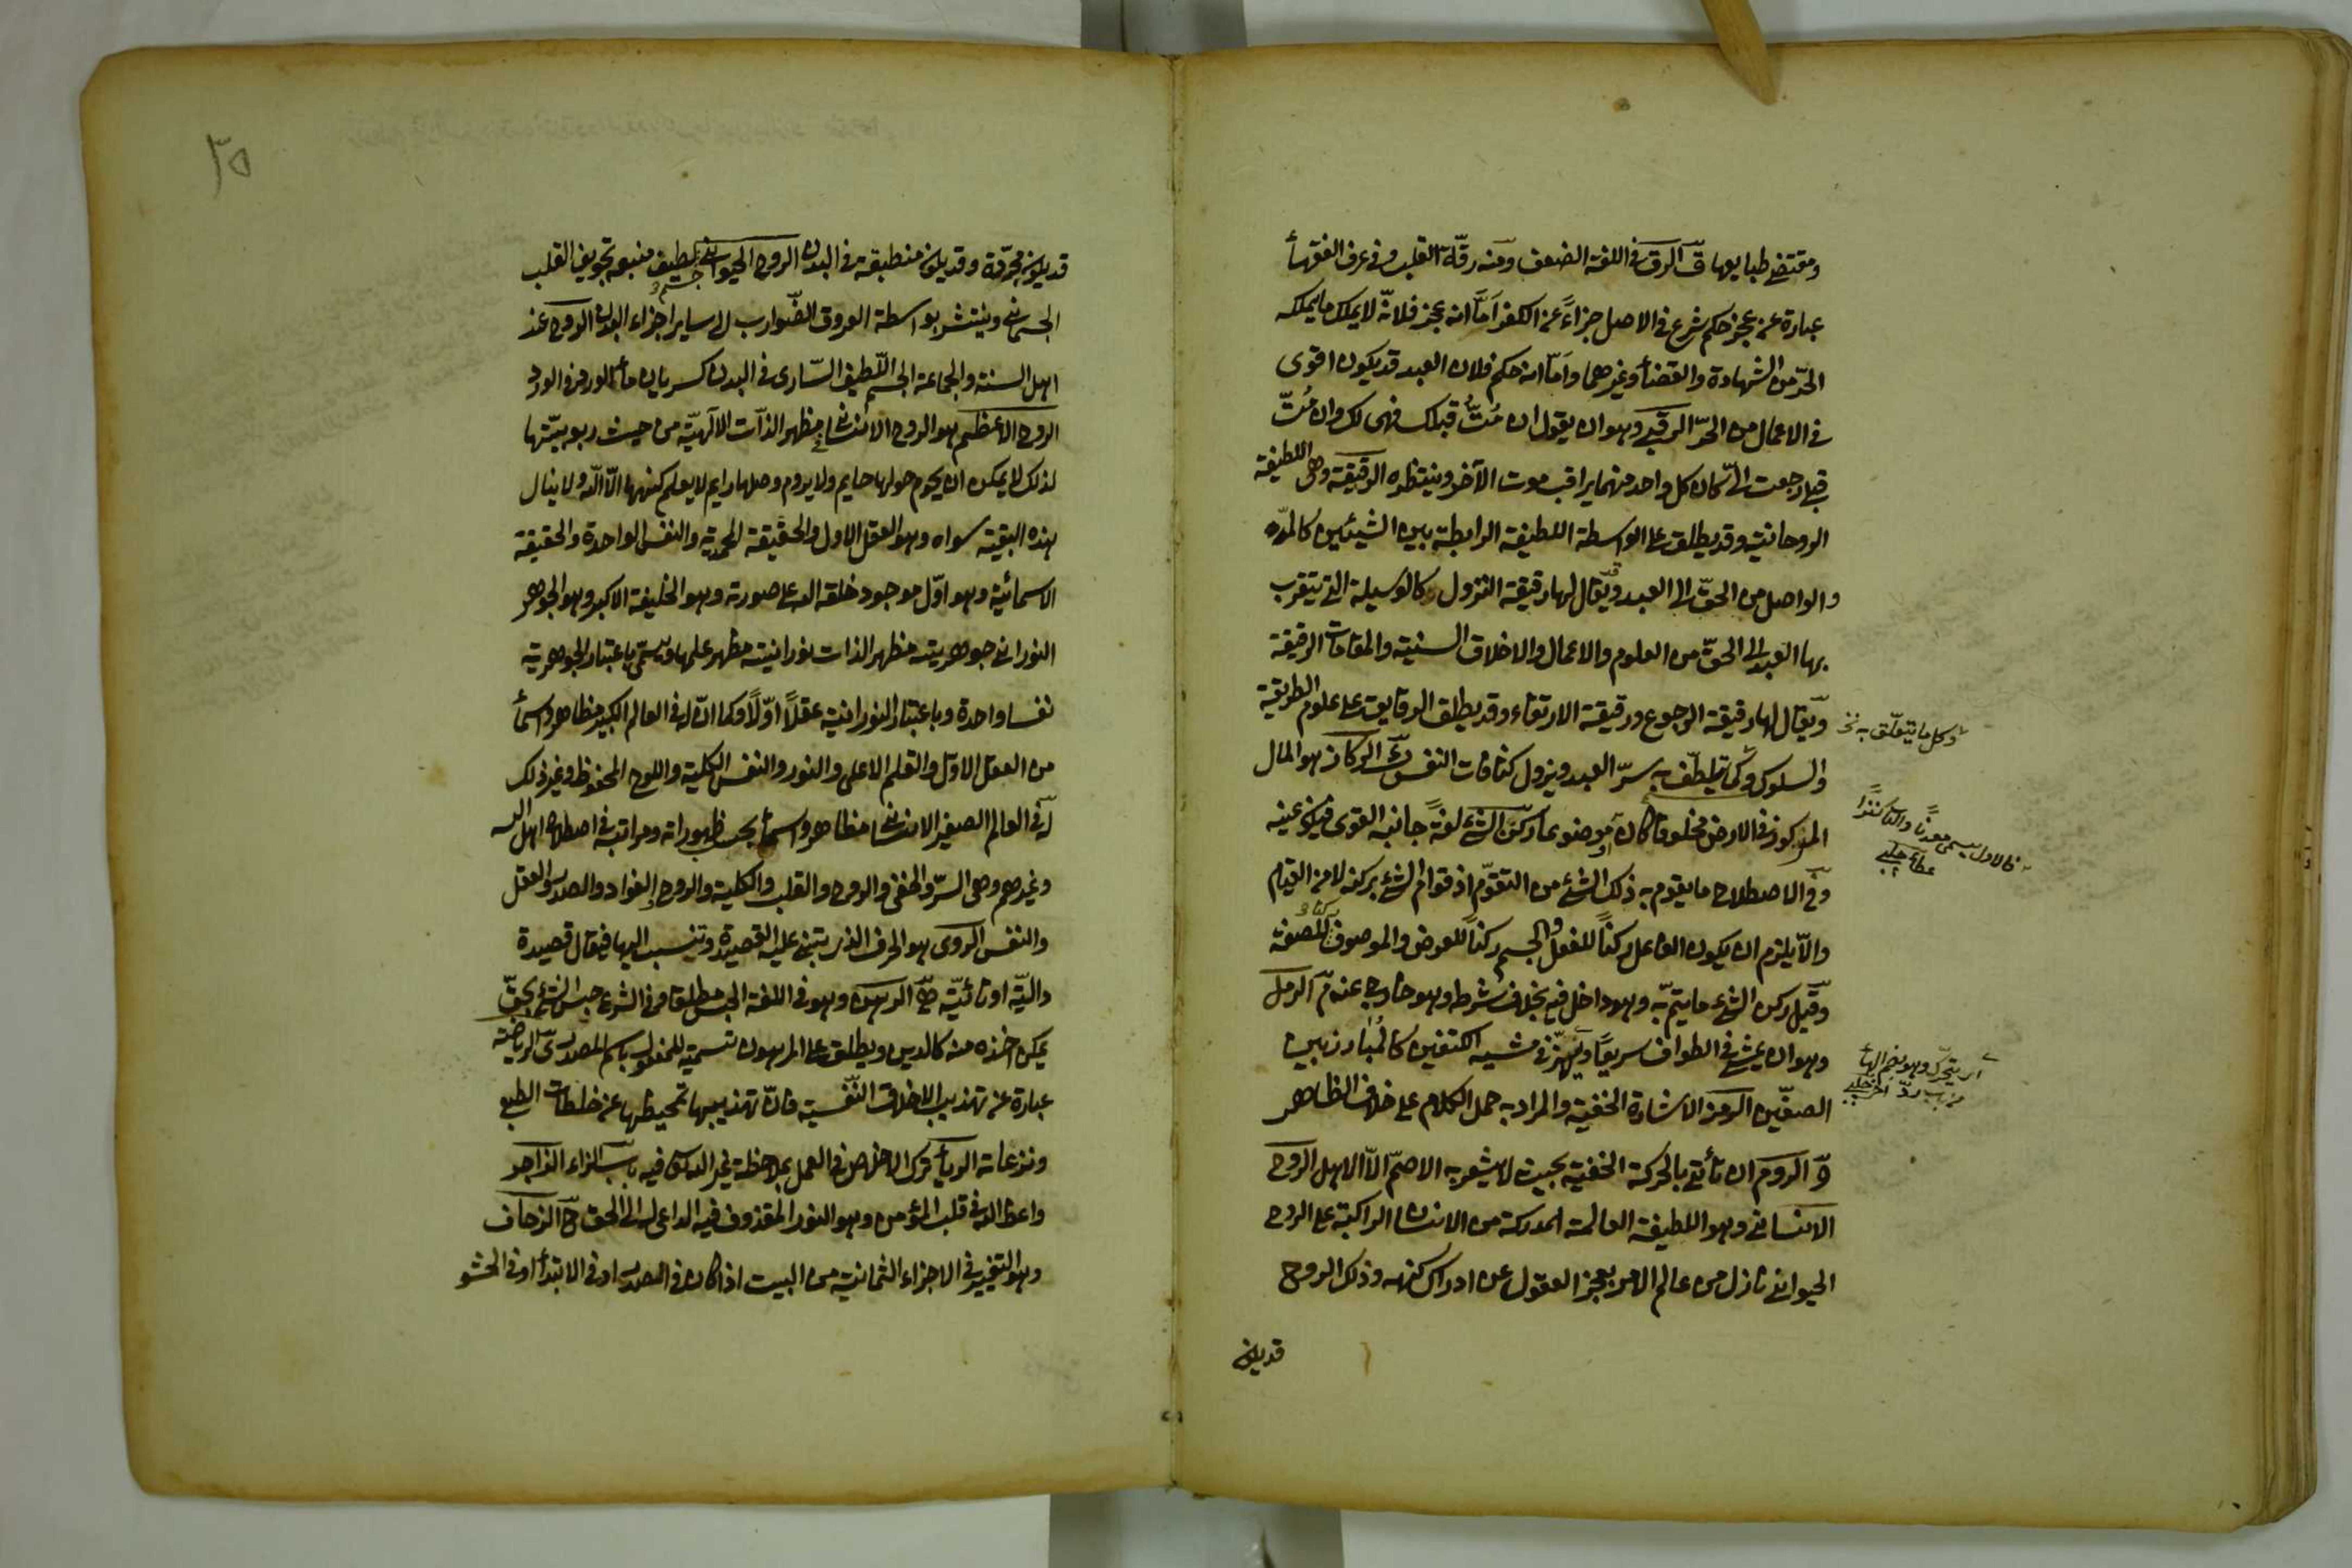 ومقتضى طبايعها ق الرق في اللغة الضعف ومنه رقة القلب وفي عرف الفقهأ
عبارة عن عجز حكمى شرع في الاصل جزاءً عن الكفر اَمّا انه عجز فلانّه لا يملك ما يملكه
الحرّ من الشهادة والقضأ وغيرهما واَمّا انه حكمى فلان العبد قد يكون اقوى
في الاعمال من الحرّ الرقبى وهو ان يقول ان مُتُّ قبلك فهى لك وان مُتّ
قبلى رجعت الىّ كان كل واحد منهما يراقب موت الآخر وينتظره الرقيقة وهى اللطيفة
الروحانية وقد يطلق على الواسطة اللطيفة الرابطة بين الشيئين كالمدد
والواصل من الحقّ الى العبد وقد يقال لها رقيقة النزول وكالوسيلة التى يتقرب
بها العبد الى الحقّ من العلوم والاعمال والاخلاق السنية والمقامات الرفيعة
ويقال لها رقيقة الرجوع ورقيقة الارتقاء وقد يطلق الرقايق على علوم الطريقة
وكل ما يتعلّق به نخ
والسلوك وكل ما يتلطّف به سرّ العبد ويزول كثافات النفس ك الركاز هو المال
المركوز في الارض مخلوقا كان او موضوعا ركن الشئ لغةً جانبه القوى فيكون عينه
فالاول يسمى معدنًا والثانى كنزًا
وفي الاصطلاح ما يقوم به ذلك الشئ من التقوّم اذ قوام الشئ بركنه لا من القيام
والّا يلزم ان يكون الفاعل ركنًا للفعل والجسم ركنًا للعرض والموصوف ركنا للصفة
وقيل ركن الشئ ما يتم به وهو داخل فيه بخلاف شرطه وهو خارج عنه م الرمل
وهو ان يمشى في الطواف سريعًا ويهزّ في مشيه الكتفين كالمُبارز بين
اى يتحرّك وهو بضم الهأ
من باب ردّ اخترى چلبى
الصفّين الرمز الاشارة الخفية والمراد به حمل الكلام على خلاف الظاهر
وَ الروم ان تأتى بالحركة الخفية بحيث لا يشعر به الاصمّ الّا لاهل الروح
الانسانى وهو اللطيفة العالمة المدركة من الانسان الراكبة على الروح
الحيوانى نازل من عالم الامر يعجز العقول عن ادراك كنهه وذلك الروح
قد يكون
٣٥
قد يكون مجرّدة وقد يكون منطبقة في البدن الروح الحيوانى جسم لطيف منبعه تجويف القلب
الجسمانى وينتشر بواسطة العروق الضوارب الى ساير اجزاء البدن الروح عند
اهل السنة والجماعة الجسم اللّطيف السّارى في البدن كسريان مأ الورد في الورد
الروح الاعظم هو الروح الانسانى مظهر الذّات الالٓهيّة من حيث ربوبيّتها
لذلك لا يمكن ان يحوم حولها حايم ولا يروم وصلها رايم لا يعلم كنهها الّا الله ولا ينال
هذه البغية سواه وهو العقل الاول والحقيقة المحمدية والنفس الواحدة والحقيقة
الاسمائية وهو اوّل موجود خلقه الله على صورته وهو الخليفة الاكبر وهو الجوهر
النورانى جوهريته مظهر الذات ونورانيته مظهر علمها ويسمّى باعتبار الجوهرية
نفسا واحدة وباعتبار النورانية عقلًا اوّلًا وكما انّ له في العالم الكبير مظاهر واسمأ
من العقل الاول والقلم الاعلى والنور والنفس الكلية واللوح المحفوظ وغير ذلك
له في العالم الصغير الانسانى مظاهر واسمأ بحسب ظهوراته ومراتبه في اصطلاح اهل الله
وغيرهم وهى السرّ والخفى والروح والقلب والكلية والروح والفواد والصدر والعقل
والنفس الروى هو الحرف الذى يبتنى عليه القصيدة وتنسب اليها فيقال قصيدة
داليّة او تائيّة هَ الرهن وهو في اللغة الحبس مطلقا وفي الشرع حبس الشئ بحقّ
يمكن اخذه منه كالدين ويطلق على المرهون تسمية للمفعول باسم المصدر ىَ الرياضة
عبارة عن تهذيب الاخلاق النّفسية فانّ تهذيبها تمحيصها عن خلطات الطبع
ونزعاته الريأ ترك الاخلاص في العمل بملاحظة غير الله فيه باب الزاء الزاجر
واعظ الله في قلب المؤمن وهو النور المقذوف فيه الداعى له الى الحق حَ الزحاف
وهو التغيير في الاجزاء الثمانية من البيت اذا كان في الصدر او في الابتدأ او في الحشو